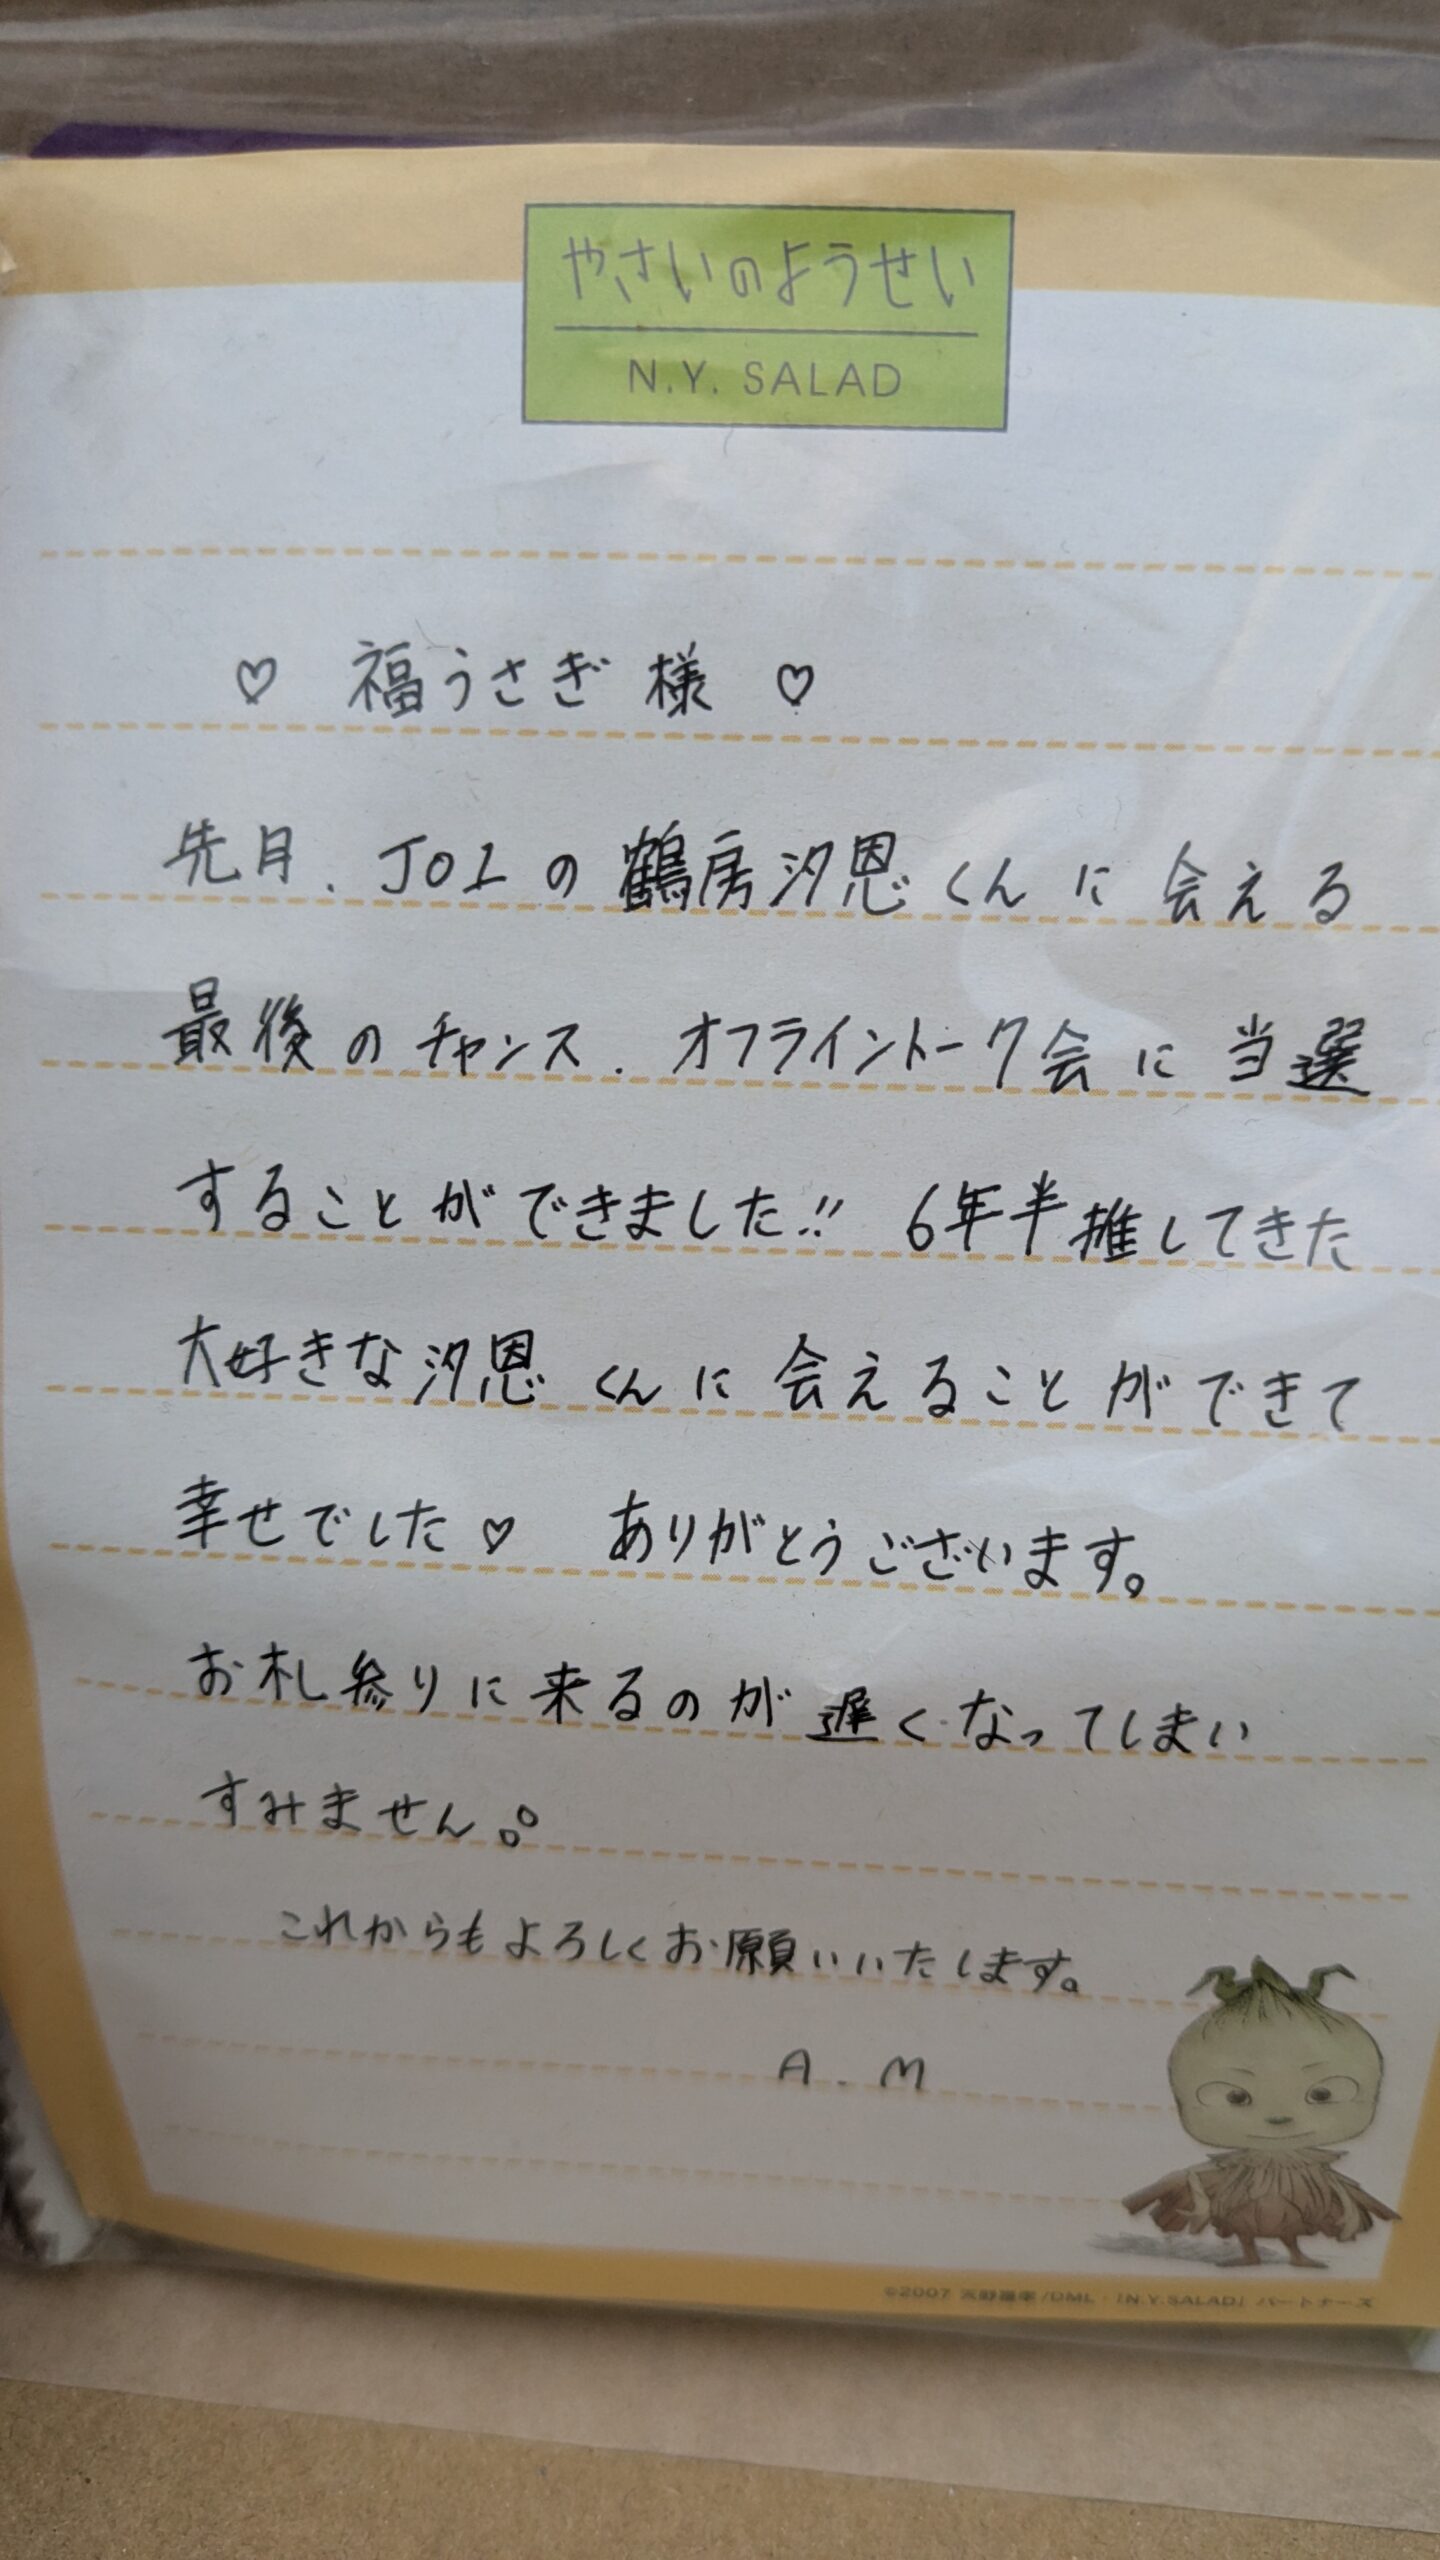 やさいのようせい
N.Y. SALAD
♡ 福うさぎ 様 ♡
先月、JO1の鶴房汐恩くんに会える
最後のチャンス、オフライントーク会に当選
することができました!! 6年半推してきた
大好きな汐恩くんに会えることができて
幸せでした♡ ありがとうございます。
お札参りに来るのが遅くなってしまい
すみません。。
これからもよろしくお願いいたします。
A.M
©2007 天野喜孝/DML・「N.Y.SALAD」パートナーズ